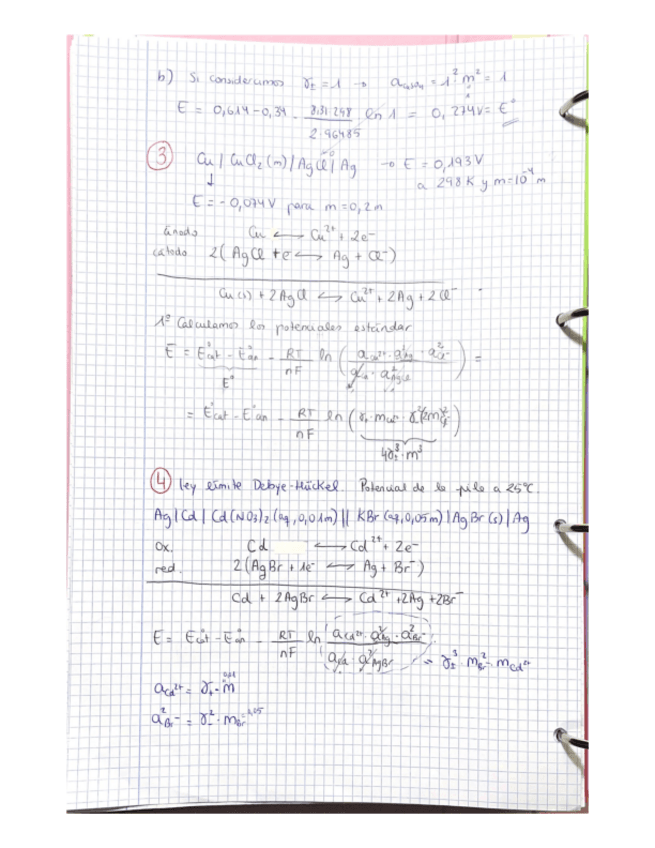 b) Si consideramos γ± = 1 → a_CuSO4 = 1² · m² = 1
E = 0,614 - 0,34 - 8,31·298 / 2·96485 ln 1 = 0,274V = E°
③ Cu | CuCl₂ (m) | AgCl | Ag → E = 0,193V
a 298K y m=10⁻⁴ m
↓
E = -0,074V para m = 0,2m
ánodo Cu ⟷ Cu²⁺ + 2e⁻
cátodo 2( AgCl + e ⟷ Ag + Cl⁻)
Cu(s) + 2AgCl ⟷ Cu²⁺ + 2Ag + 2Cl⁻
1º Calculamos los potenciales estándar
E = E°cat - E°an - RT/nF ln ( a_Cu²⁺ · a²_Ag · a²_Cl⁻ / a_Cu · a²_AgCl ) =
E°
= E°cat - E°an - RT/nF ln (
4γ±³ · m³
④ ley límite Debye-Hückel. Potencial de la pila a 25°C.
Ag | Cd | Cd(NO₃)₂ (aq, 0,01m) || KBr (aq, 0,05m) | AgBr (s) | Ag
Ox. Cd ⟷ Cd²⁺ + 2e⁻
red. 2(AgBr + 1e⁻ ⟷ Ag + Br⁻)
Cd + 2AgBr ⟷ Cd²⁺ + 2Ag + 2Br⁻
E = E°cat - E°an - RT/nF ln a_Cd²⁺ · a²_Ag · a²_Br⁻ / a_Cd · a²_AgBr = γ±³ · m²_Br⁻ · m_Cd²⁺
a_Cd²⁺ = γ₊ · m
a²_Br⁻ = γ₋² · m_Br⁻ 0,05